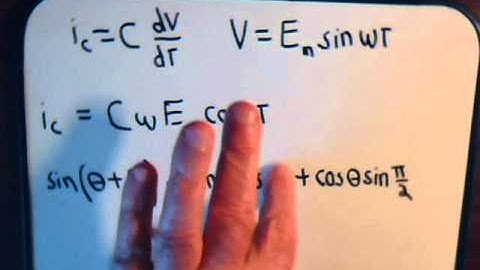 i_c = C dV/dT V = E_n sin wT
i_c = C w E
sin(θ + + cosθ sin π/2